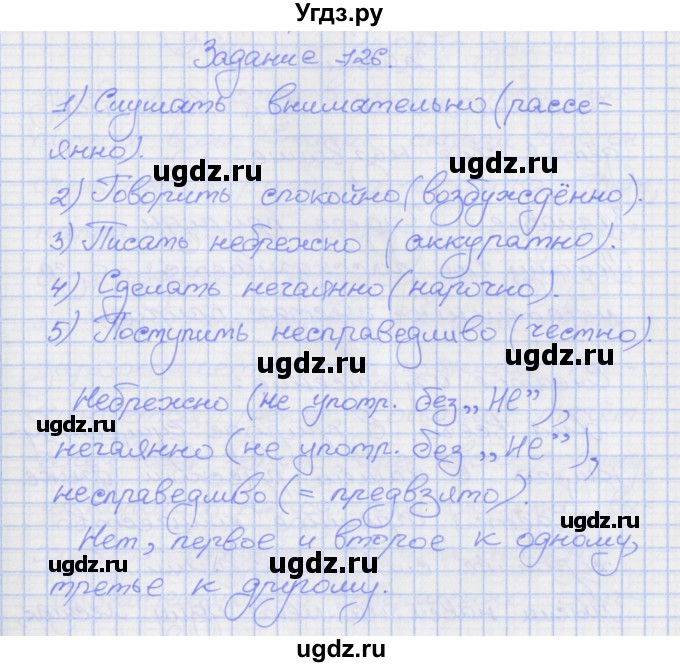 Угдз.ру
Задание 126.
1) Слушать внимательно (рассе-
янно).
ugdz.ru ugdz.ru
2) Говорить спокойно (возбуждённо).
3) Писать небрежно (аккуратно).
ugdz.ru ugdz.ru
4) Сделать нечаянно (нарочно).
5) Поступить несправедливо (честно).
ugdz.ru ugdz.ru
Небрежно (не употр. без „Не”),
ugdz.ru
нечаянно (не употр. без „Не”),
ugdz.ru
несправедливо (= предвзято).
ugdz.ru
Нет, первое и второе к одному,
ugdz.ru ugdz.ru
третье к другому.
ugdz.ru